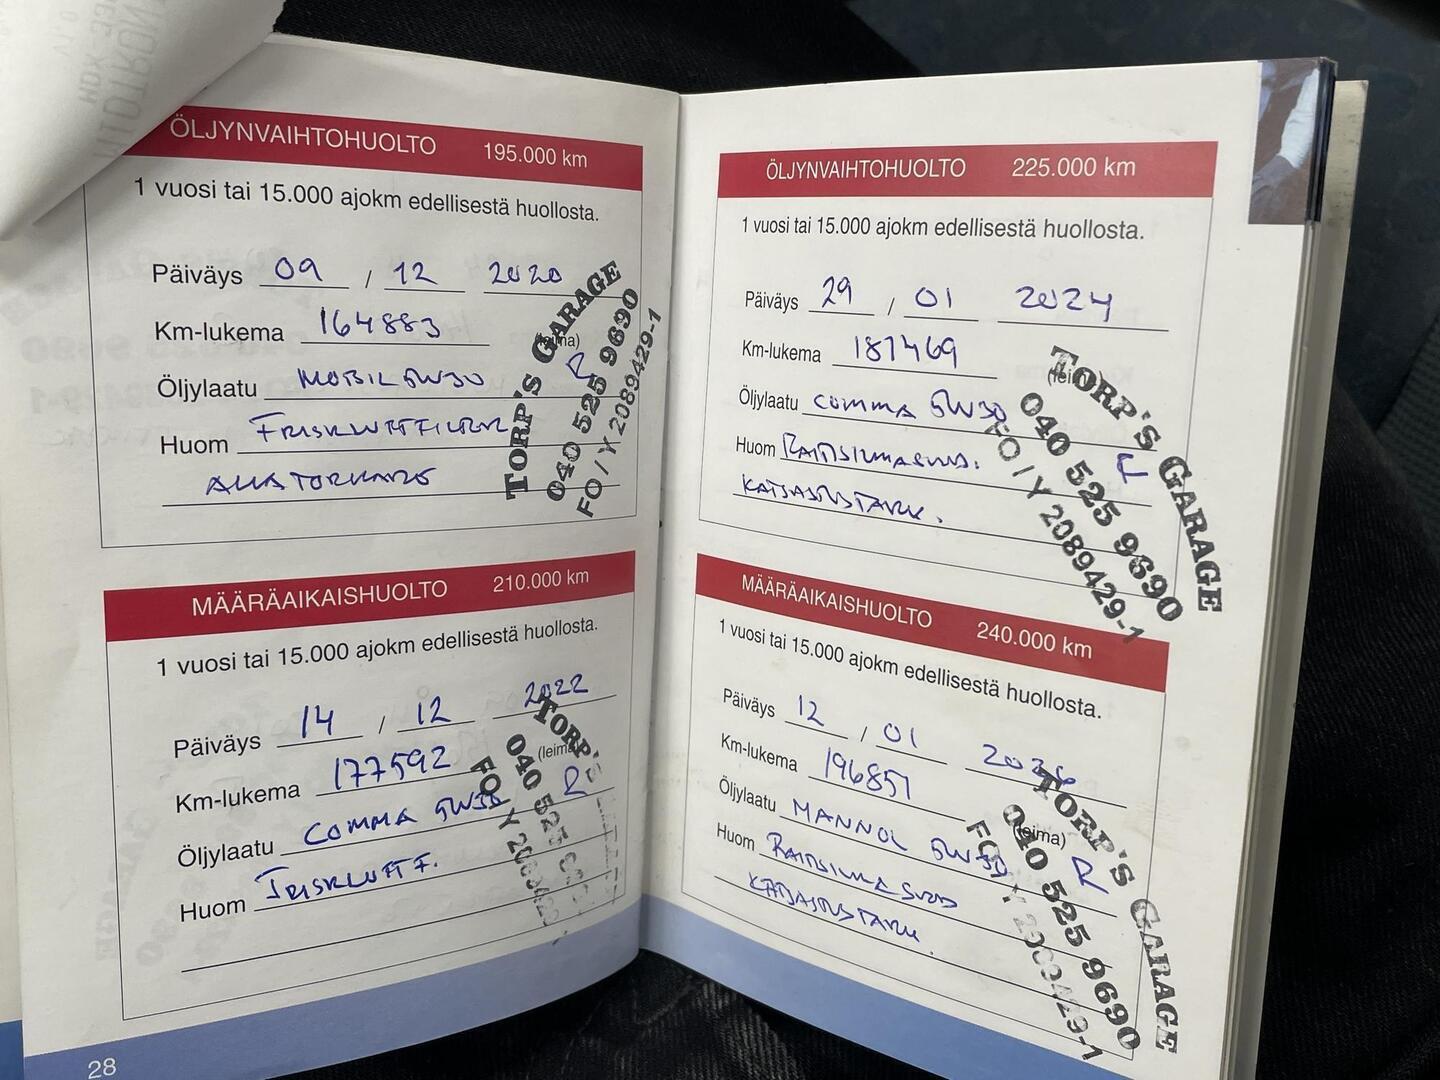 ÖLJYNVAIHTOHUOLTO 195.000 km
1 vuosi tai 15.000 ajokm edellisestä huollosta.
Päiväys 09 / 12 2020
Km-lukema 164883
(leima)
Öljylaatu MOBIL 5W30 R
Huom FRISKLUFTFILTER
TORP'S GARAGE
040 525 9690
FO / Y 2089429-1
MÄÄRÄAIKAISHUOLTO 210.000 km
1 vuosi tai 15.000 ajokm edellisestä huollosta.
Päiväys 14 / 12 2022
Km-lukema 177592
(leima)
Öljylaatu COMMA 5W30 R
Huom FRISKLUFT F.
TORP'S
040 525
FO / Y
28
ÖLJYNVAIHTOHUOLTO 225.000 km
1 vuosi tai 15.000 ajokm edellisestä huollosta.
Päiväys 29 / 01 2024
Km-lukema 187469
(leima)
Öljylaatu COMMA 5W30
Huom RAITISILMASUOD. R
KATSASTUSTARK.
TORP'S GARAGE
040 525 9690
FO / Y 2089429-1
MÄÄRÄAIKAISHUOLTO 240.000 km
1 vuosi tai 15.000 ajokm edellisestä huollosta.
Päiväys 12 / 01 2026
Km-lukema 196857
(leima)
Öljylaatu MANNOL 5W30 R
Huom RAITISILMA SUOD
KATSASTUSTARK.
TORP'S GARAGE
040 525 9690
FO / Y 2089429-1